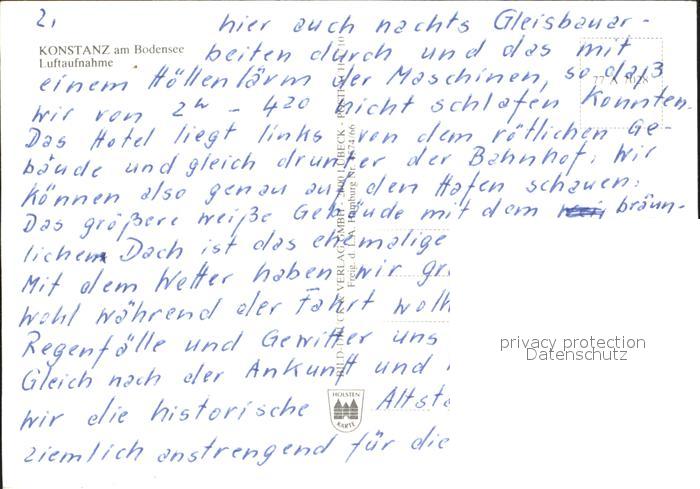 2,
hier auch nachts Gleisbauar-
KONSTANZ am Bodensee
Luftaufnahme
beiten durch und das mit
einem Höllenlärm der Maschinen, so daß
wir von 2 - 4 20 nicht schlafen konnten.
Das Hotel liegt links von dem rötlichen Ge-
bäude und gleich drunter der Bahnhof. Wir
können also genau auf den Hafen schauen.
Das größere weiße Gebäude mit dem bräun-
lichem Dach ist das ehemalige
Mit dem Wetter haben wir
wohl während der Fahrt
Regenfälle und Gewitter uns
Gleich nach der Ankunft und
wir die historische Altst
ziemlich anstrengend für die
HOLSTEN
KARTE
privacy protection
Datenschutz